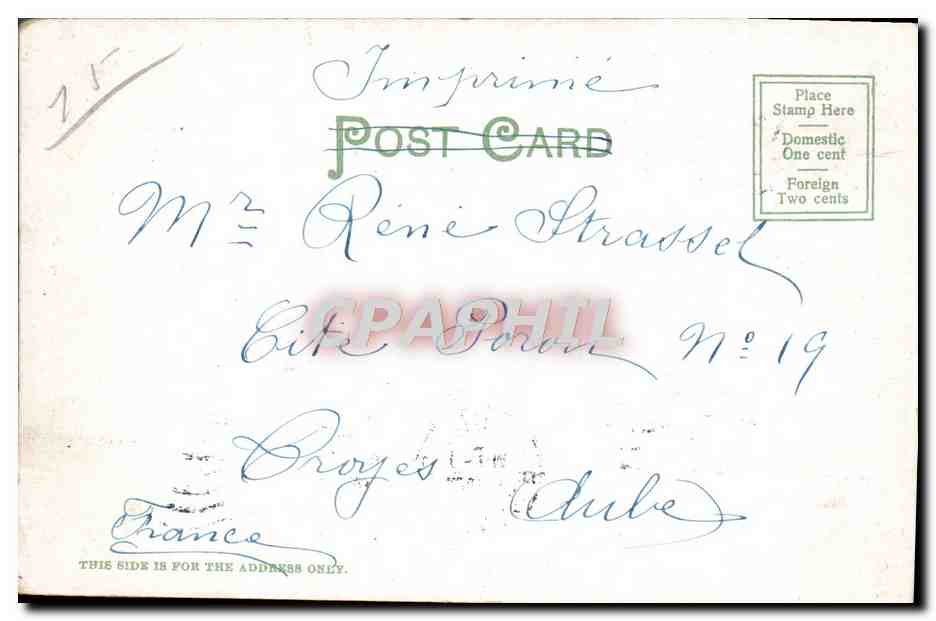 15
Imprimé
POST CARD
Place
Stamp Here
Domestic
One cent
Foreign
Two cents
Mr Réné Strassel
CPAPHIL
Cité Poron No 19
Troyes
Aube
France
THIS SIDE IS FOR THE ADDRESS ONLY.